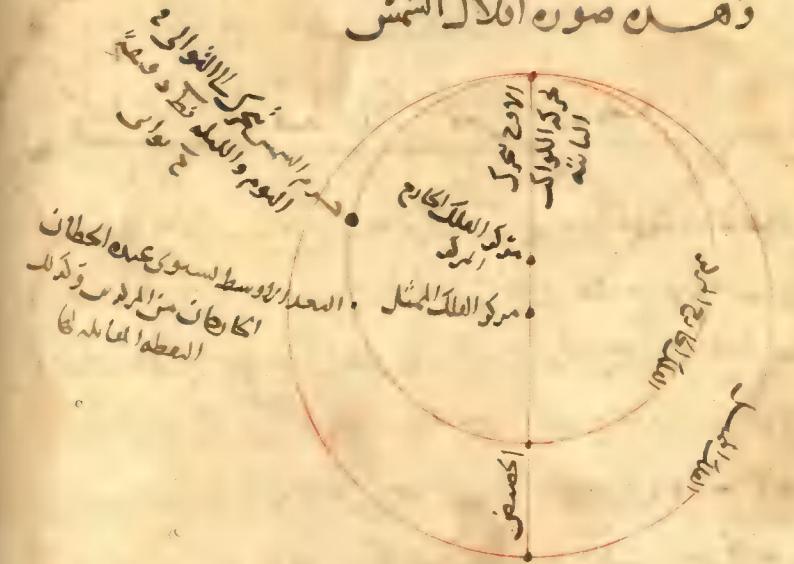 وهذه صورة افلاك الشمس
جرم الشمس يتحرك الى التوالي في
اليوم والليلة نط دقيقة
ح ثواني
الاوج يتحرك
بحركة الكواكب
الثابتة
مركز الفلك الخارج
المركز
مركز الفلك الممثل
البعد الاوسط يستوي عنده الخطان
الخارجان من المركزين وكذلك
النقطة المقابلة لها
الفلك الخارج المركز
الفلك الممثل
الحضيض